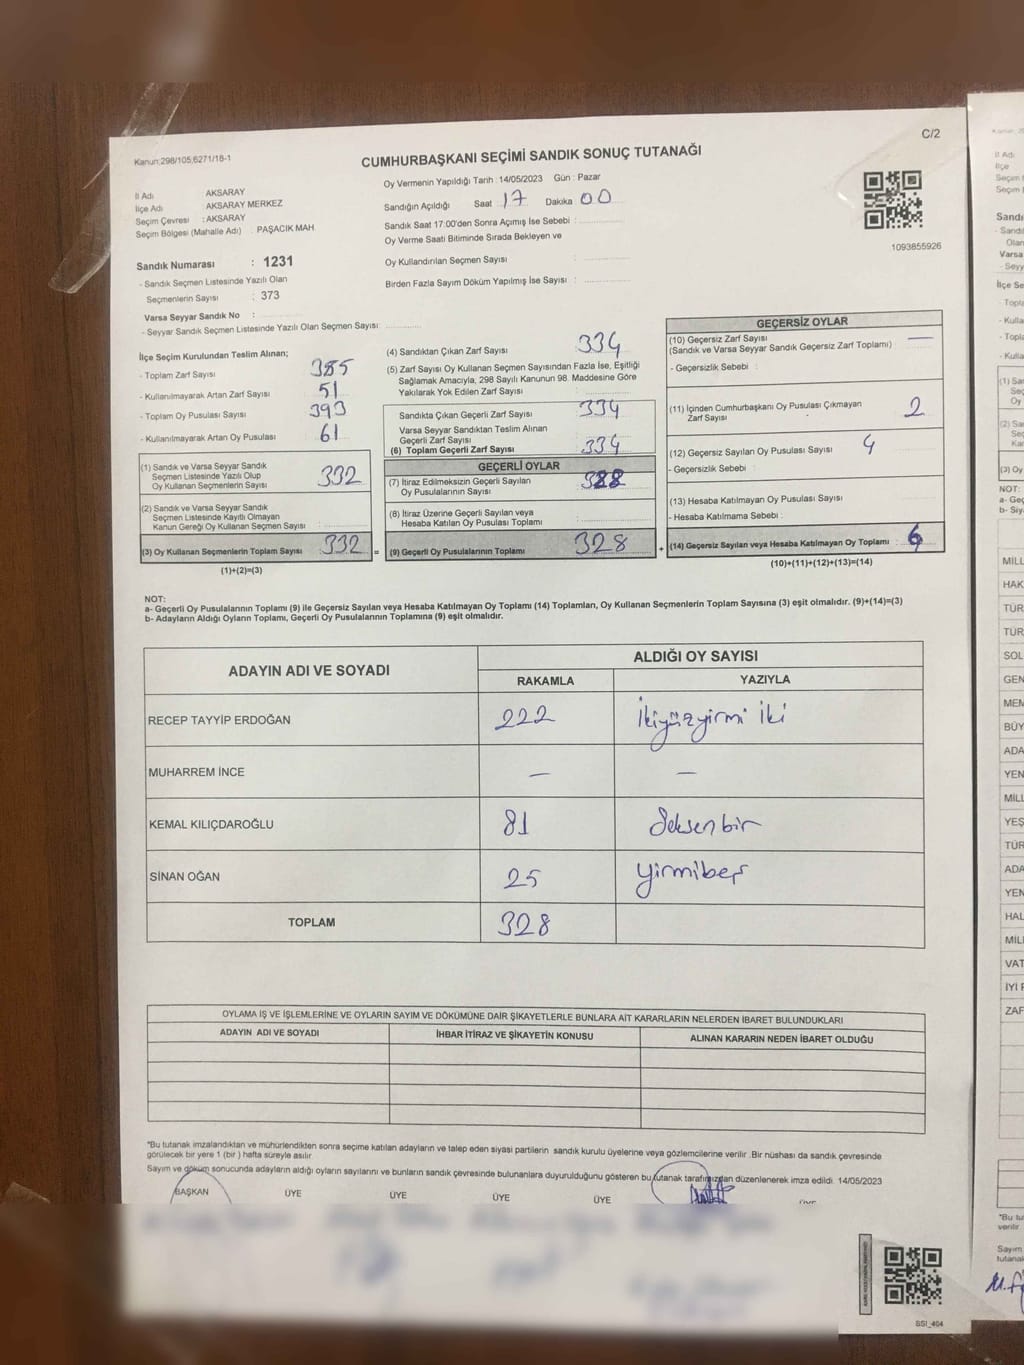 Kanun:298/105;6271/18-1
C/2
CUMHURBAŞKANI SEÇİMİ SANDIK SONUÇ TUTANAĞI
İl Adı AKSARAY
İlçe Adı AKSARAY MERKEZ
Seçim Çevresi : AKSARAY
Seçim Bölgesi (Mahalle Adı) : PAŞACIK MAH.
Sandık Numarası : 1231
- Sandık Seçmen Listesinde Yazılı Olan
Seçmenlerin Sayısı : 373
Varsa Seyyar Sandık No :
- Seyyar Sandık Seçmen Listesinde Yazılı Olan Seçmen Sayısı:
Oy Vermenin Yapıldığı Tarih : 14/05/2023 Gün : Pazar
Sandığın Açıldığı Saat 17 Dakika 00
Sandık Saat 17:00'den Sonra Açımış İse Sebebi :
Oy Verme Saati Bitiminde Sırada Bekleyen ve
Oy Kullandırılan Seçmen Sayısı :
Birden Fazla Sayım Döküm Yapılmış İse Sayısı :
1093855926
İlçe Seçim Kurulundan Teslim Alınan;
- Toplam Zarf Sayısı 385
- Kullanılmayarak Artan Zarf Sayısı 51
- Toplam Oy Pusulası Sayısı 393
- Kullanılmayarak Artan Oy Pusulası 61
(1) Sandık ve Varsa Seyyar Sandık
Seçmen Listesinde Yazılı Olup
Oy Kullanan Seçmenlerin Sayısı 332
(2) Sandık ve Varsa Seyyar Sandık
Seçmen Listesinde Kayıtlı Olmayan
Kanun Gereği Oy Kullanan Seçmen Sayısı :
(3) Oy Kullanan Seçmenlerin Toplam Sayısı : 332 =
(1)+(2)=(3)
(4) Sandıktan Çıkan Zarf Sayısı 334
(5) Zarf Sayısı Oy Kullanan Seçmen Sayısından Fazla İse, Eşitliği
Sağlamak Amacıyla, 298 Sayılı Kanunun 98. Maddesine Göre
Yakılarak Yok Edilen Zarf Sayısı
Sandıkta Çıkan Geçerli Zarf Sayısı 334
Varsa Seyyar Sandıktan Teslim Alınan
Geçerli Zarf Sayısı
(6) Toplam Geçerli Zarf Sayısı 334
GEÇERLİ OYLAR
(7) İtiraz Edilmeksizin Geçerli Sayılan
Oy Pusulalarının Sayısı 328
(8) İtiraz Üzerine Geçerli Sayılan veya
Hesaba Katılan Oy Pusulası Toplamı
(9) Geçerli Oy Pusulalarının Toplamı 328 +
GEÇERSİZ OYLAR
(10) Geçersiz Zarf Sayısı —
(Sandık ve Varsa Seyyar Sandık Geçersiz Zarf Toplamı)
- Geçersizlik Sebebi :
(11) İçinden Cumhurbaşkanı Oy Pusulası Çıkmayan
Zarf Sayısı 2
(12) Geçersiz Sayılan Oy Pusulası Sayısı 4
- Geçersizlik Sebebi :
(13) Hesaba Katılmayan Oy Pusulası Sayısı
- Hesaba Katılmama Sebebi :
(14) Geçersiz Sayılan veya Hesaba Katılmayan Oy Toplamı :
(10)+(11)+(12)+(13)=(14)
NOT:
a- Geçerli Oy Pusulalarının Toplamı (9) ile Geçersiz Sayılan veya Hesaba Katılmayan Oy Toplamı (14) Toplamları, Oy Kullanan Seçmenlerin Toplam Sayısına (3) eşit olmalıdır. (9)+(14)=(3)
b- Adayların Aldığı Oyların Toplamı, Geçerli Oy Pusulalarının Toplamına (9) eşit olmalıdır.
ADAYIN ADI VE SOYADI
ALDIĞI OY SAYISI
RAKAMLA YAZIYLA
RECEP TAYYİP ERDOĞAN 222 İkiyüzyirmi iki
MUHARREM İNCE — —
KEMAL KILIÇDAROĞLU 81 Seksenbir
SİNAN OĞAN 25 yirmibeş
TOPLAM 328
OYLAMA İŞ VE İŞLEMLERİNE VE OYLARIN SAYIM VE DÖKÜMÜNE DAİR ŞİKAYETLERLE BUNLARA AİT KARARLARIN NELERDEN İBARET BULUNDUKLARI
ADAYIN ADI VE SOYADI İHBAR İTİRAZ VE ŞİKAYETİN KONUSU ALINAN KARARIN NEDEN İBARET OLDUĞU
*Bu tutanak imzalandıktan ve mühürlendikten sonra seçime katılan adayların ve talep eden siyasi partilerin sandık kurulu üyelerine veya gözlemcilerine verilir .Bir nüshası da sandık çevresinde
görülecek bir yere 1 (bir ) hafta süreyle asılır.
Sayım ve döküm sonucunda adayların aldığı oyların sayılarını ve bunların sandık çevresinde bulunanlara duyurulduğunu gösteren bu tutanak tarafımızdan düzenlenerek imza edildi. 14/05/2023
BAŞKAN ÜYE ÜYE ÜYE ÜYE
SSI_404
İl Adı
İlçe
NOT: